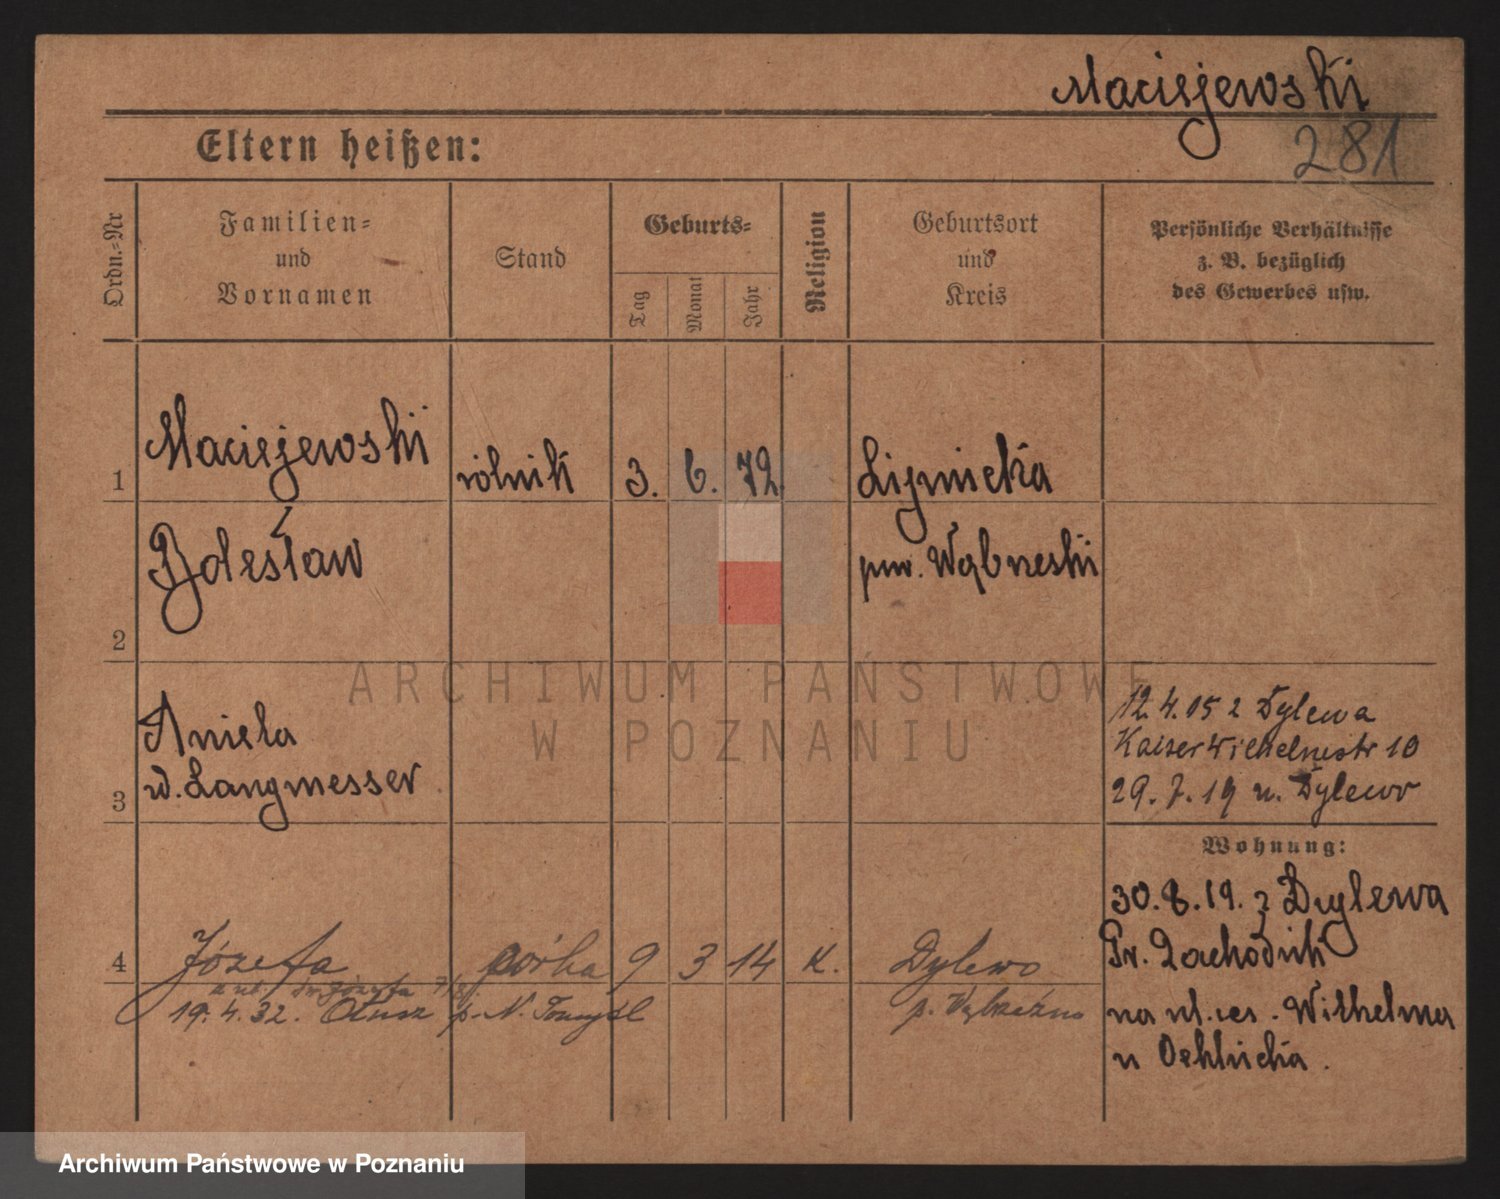 Maciejewski
281
Eltern heißen:
Ordn.=Nr
Familien=
und
Vornamen
Stand
Geburts=
Tag
Monat
Jahr
Religion
Geburtsort
und
Kreis
Persönliche Verhältnisse
z. B. bezüglich
des Gewerbes usw.
1
Maciejewski
rólnik
3. 6. 72
Lipnicka
pow.
Bolesław
2
Aniela
Langmesser
3
12.4.05 z Dylewa
Kaiser Wilhelmstr 10
29.7.19 n. Dylewo
Wohnung:
30.8.19. z Dylewa
Pr. Zachodnik
na ul. ces. Wilhelma
u
4
Józefa
córka
9 3 14
K.
Dylewo
p.
19.4.32. Otusz p. N. Tomyśl
ARCHIWUM PAŃSTWOWE
W POZNANIU
Archiwum Państwowe w Poznaniu